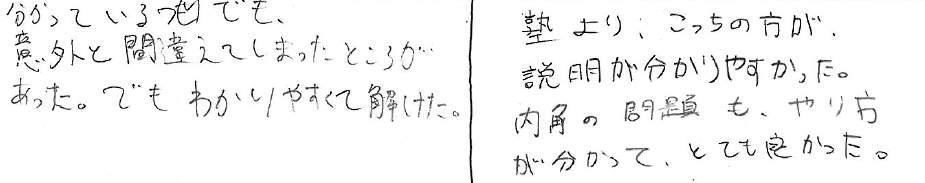 分かっているつもりでも、
意外と間違えてしまったところが
あった。でもわかりやすくて解けた。
塾より、こっちの方が、
説明が分かりやすかった。
内角の問題も、やり方
が分かって、とても良かった。